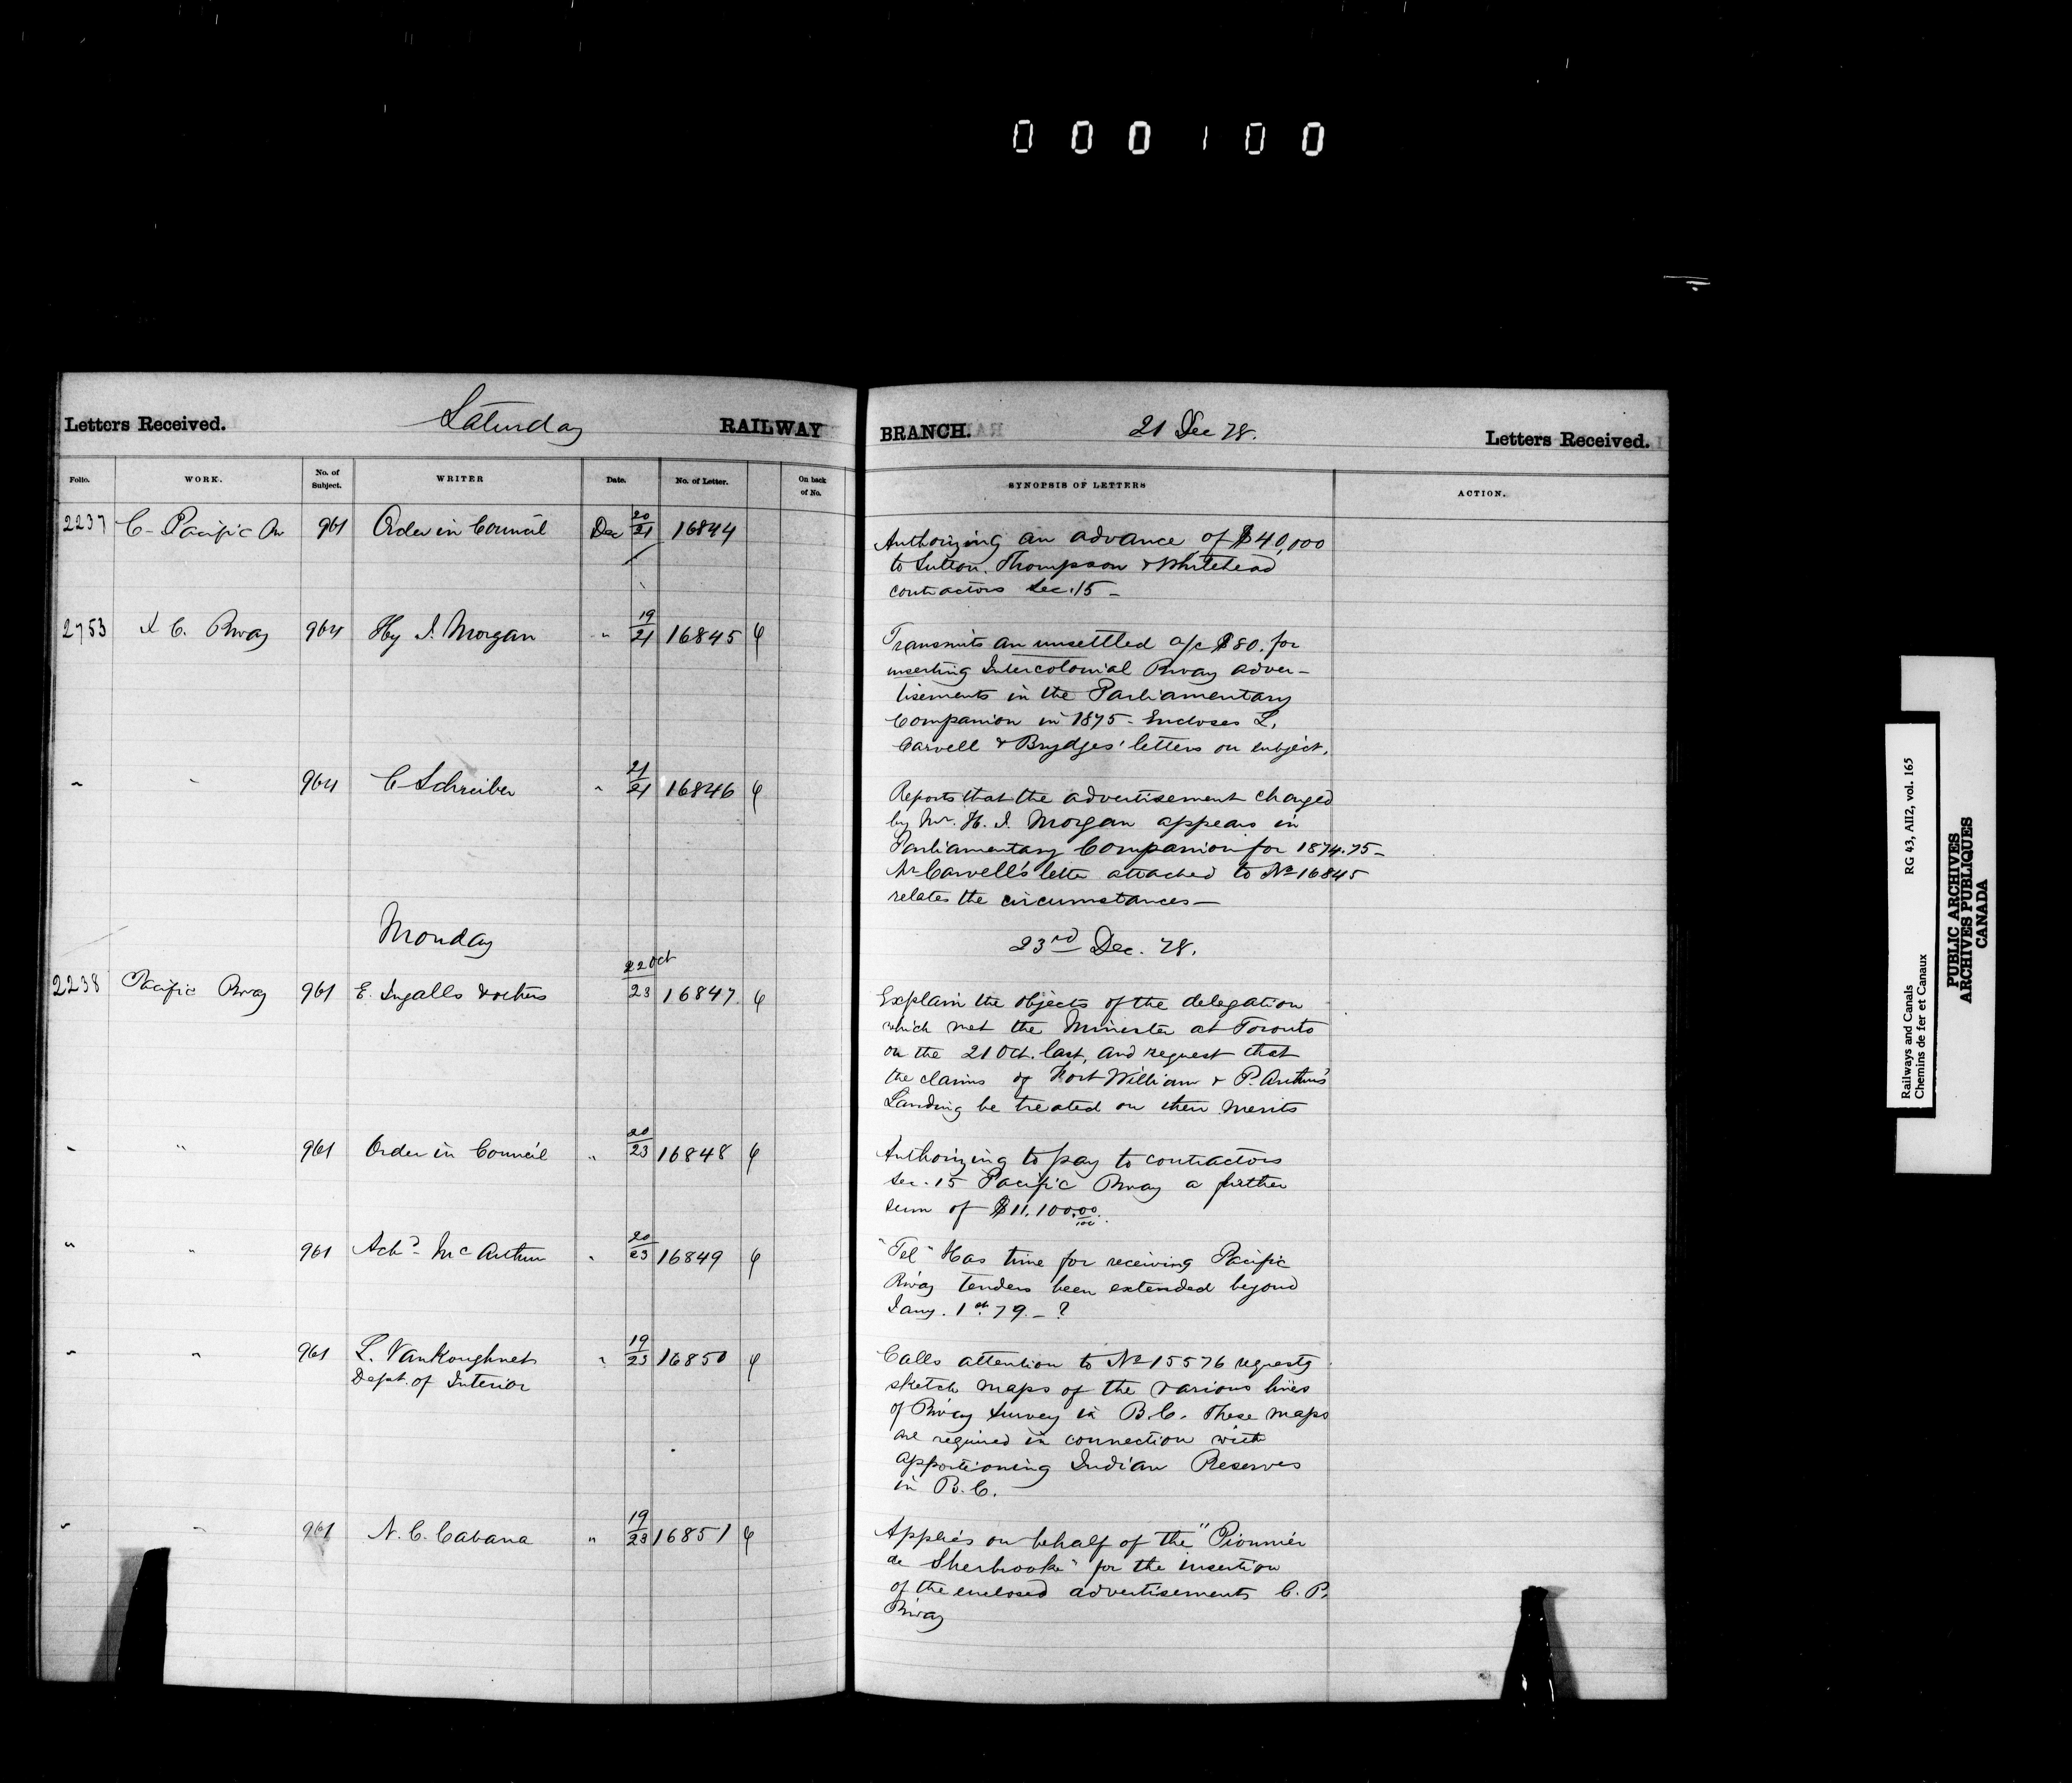 000100
Letters Received. Saturday RAILWAY BRANCH. 21 Dec 78. Letters Received.
Folio. WORK. No. of Subject. WRITER Date. No. of Letter. On back of No. SYNOPSIS OF LETTERS ACTION.
2237 C- Pacific Rw 961 Order in Council Dec 20/21 16844
Authorizing an advance of $40,000
to Sutton. Thompson & Whitehead
contractors Sec. 15 -
2753 I C. Rway 964 Hy J. Morgan " 19/21 16845
Transmits an unsettled a/c $80. for
inserting Intercolonial Rway adver-
tisements in the Parliamentary
Companion in 1875 - Encloses L.
Carvell & Brydges' letters on subject.
" " 964 C Schreiber " 21/21 16846
Reports that the advertisement charged
by Mr. H. J. Morgan appears in
Parliamentary Companion for 1874.75 -
Mr Carvell's letter attached to No 16845
relates the circumstances -
Monday 23rd Dec. 78.
2238 Pacific Rway 961 E. Ingalls & others 22 Oct/23 16847
Explain the objects of the delegation
which met the Minister at Toronto
on the 21 Oct. last, and request that
the claims of Fort William & P. Arthur's
Landing be treated on their merits
" " 961 Order in Council " 20/23 16848
Authorizing to pay to contractors
Sec. 15 Pacific Rway a further
sum of $11.100.00/100.
" " 961 Achd McArthur " 20/23 16849
"Tel" Has time for receiving Pacific
Rway tenders been extended beyond
Jany. 1st 79. - ?
" " 961 L. VanKoughnet " 19/23 16850
Dept. of Interior
Calls attention to No 15576 requests
sketch maps of the various lines
of Rway Survey in B.C. These maps
are required in connection with
apportioning Indian Reserves
in B.C.
" " 961 N. C. Cabana " 19/23 16851
Applies on behalf of the "Pionnier
de Sherbrooke" for the insertion
of the enclosed advertisements C. P.
Rway
Railways and Canals RG 43, AII2, vol. 165
Chemins de fer et Canaux
PUBLIC ARCHIVES
ARCHIVES PUBLIQUES
CANADA